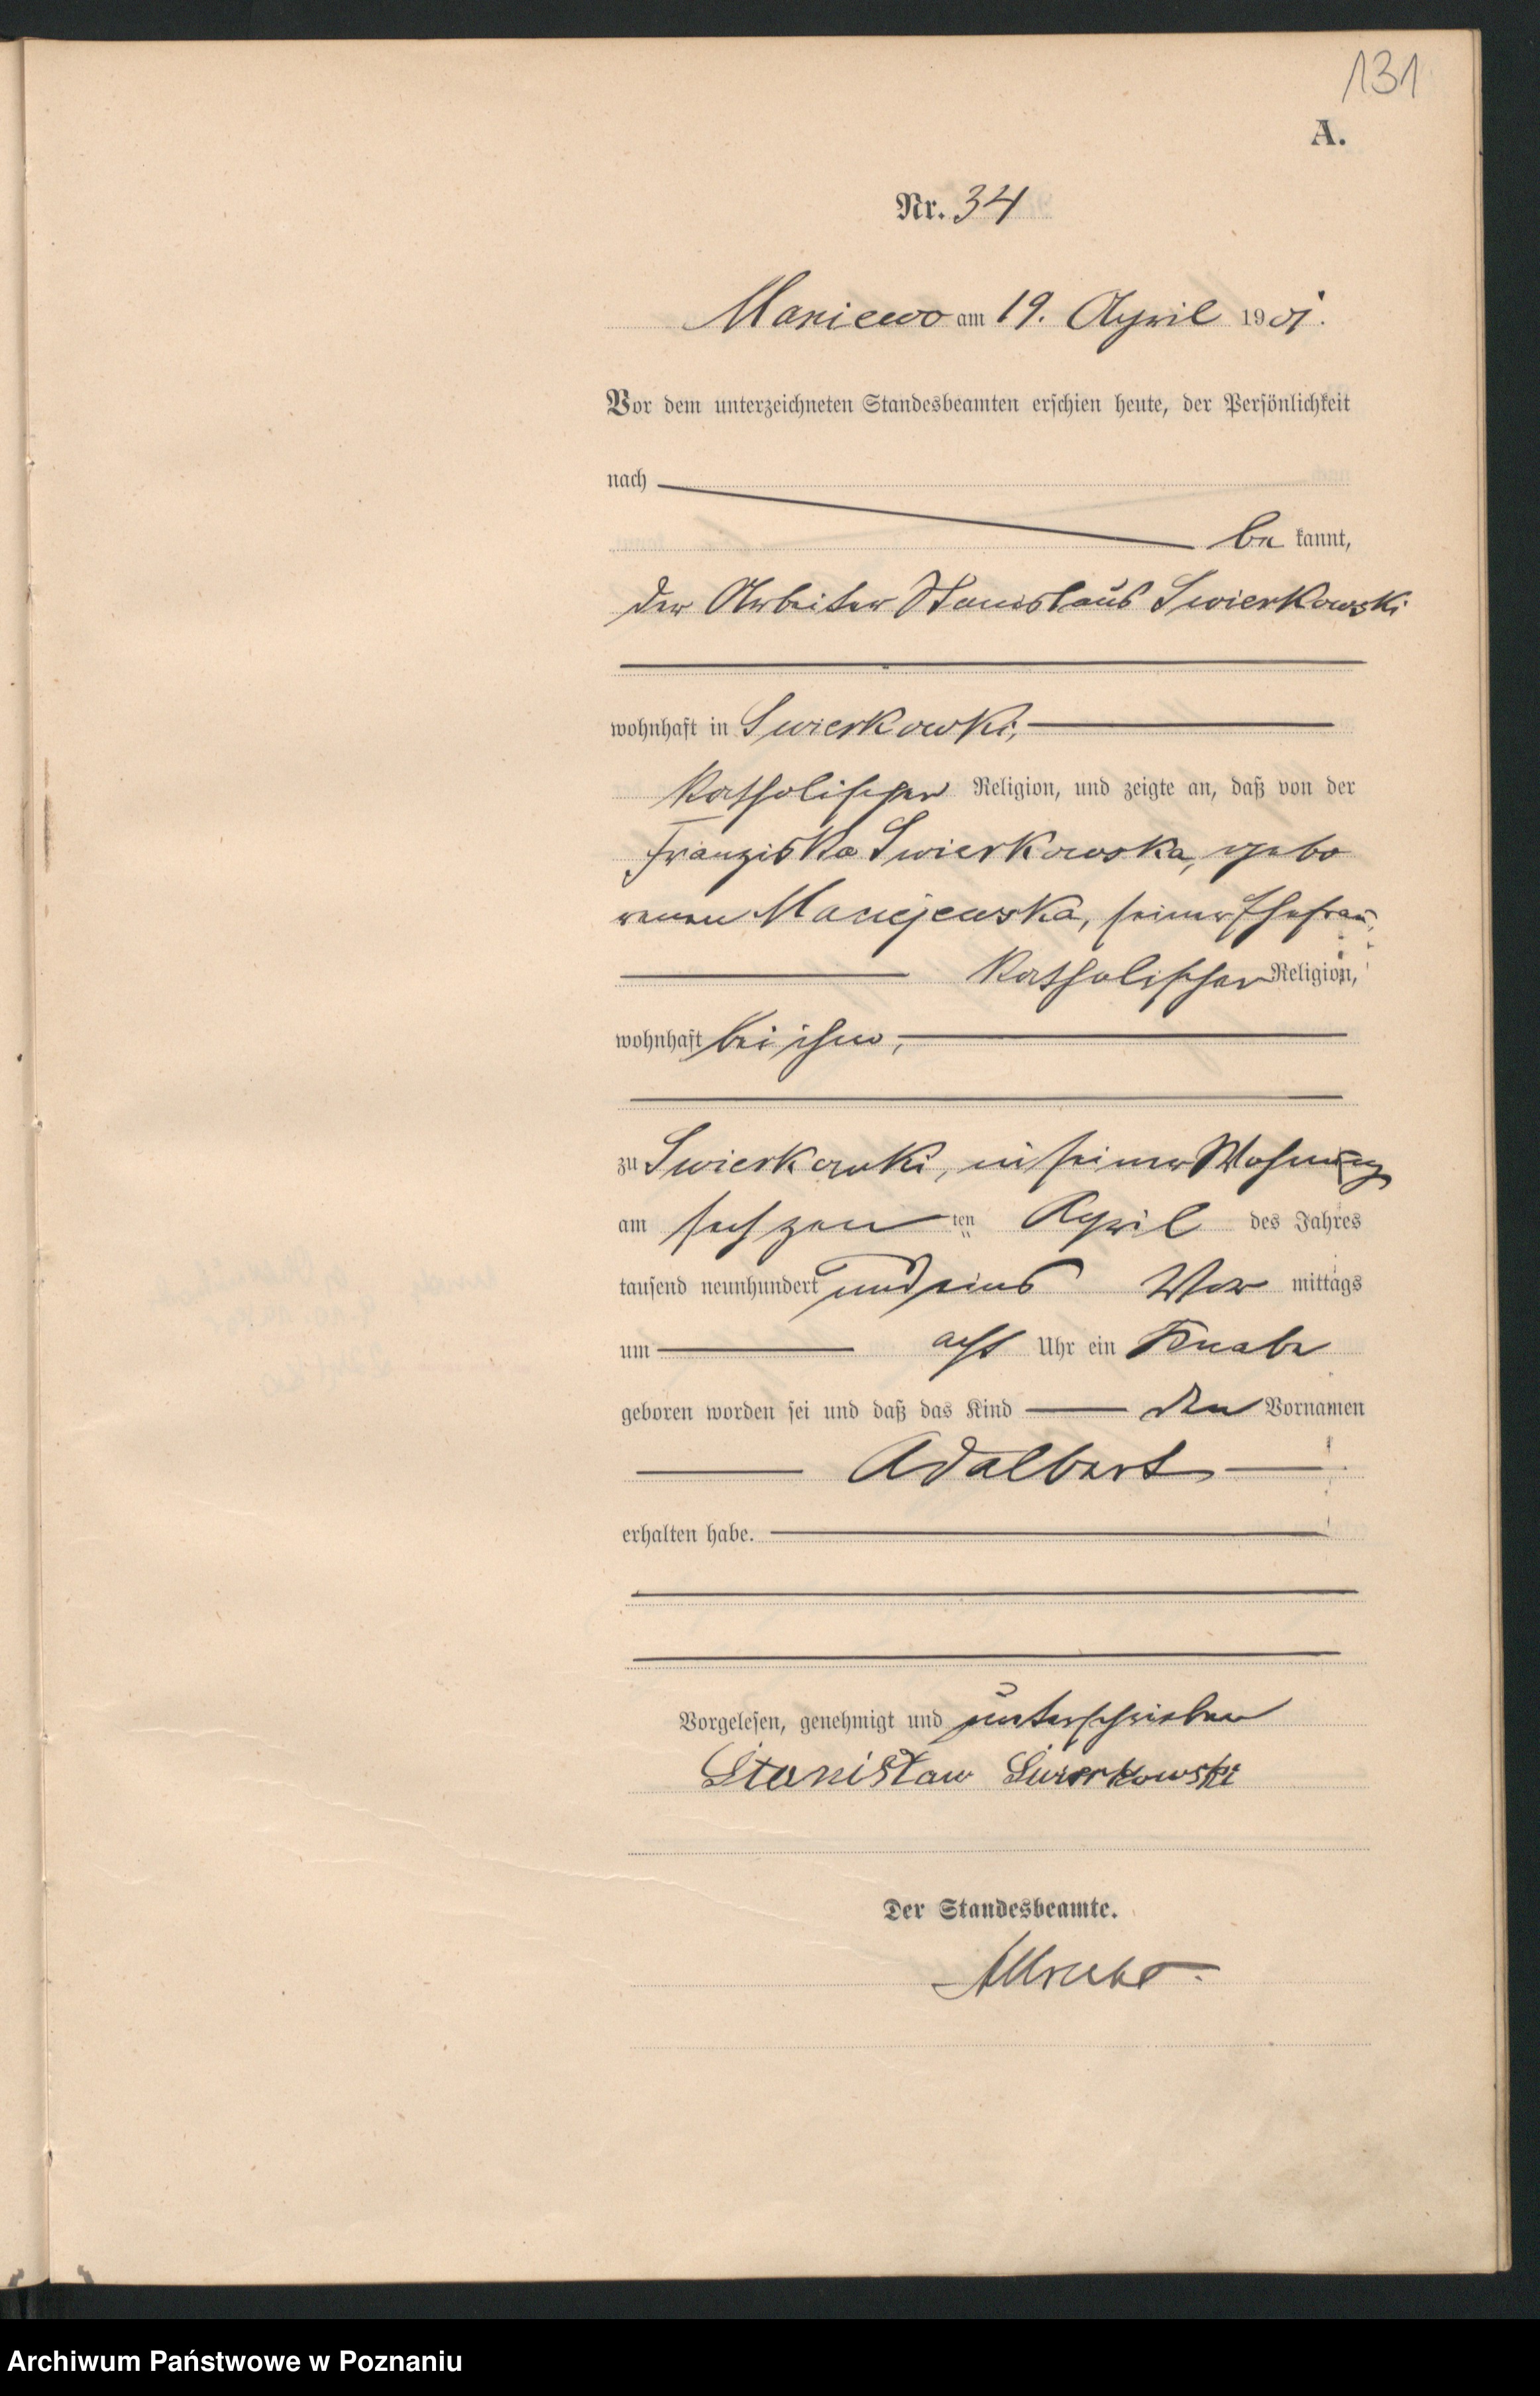 131
A.
Nr. 34
Maniewo am 19. April 1901.
Vor dem unterzeichneten Standesbeamten erschien heute, der Persönlichkeit
nach
be kannt,
der Arbeiter Stanislaus Swierkowski
wohnhaft in Swierkowki,
katholischer Religion, und zeigte an, daß von der
Franziska Swierkowska, gebo
renen Maciejewska, seiner Ehefrau,
katholischer Religion,
wohnhaft bei ihm,
zu Swierkowki, in seiner Wohnung
am sechzehn ten April des Jahres
tausend neunhundert und eins Vor mittags
um acht Uhr ein Knabe
geboren worden sei und daß das Kind den Vornamen
Adalbert
erhalten habe.
Vorgelesen, genehmigt und unterschrieben
Stanisław Swierkowski
Der Standesbeamte.
Archiwum Państwowe w Poznaniu